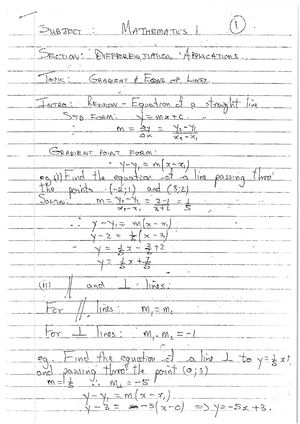 SUBJECT : MATHEMATICS 1 ①
SECTION: DIFFERENTIATION APPLICATIONS
TOPIC: GRADIENT & EQNS OF LINES
INTRO: REVISION - Equation of a straight line
STD FORM: y=mx+c.
∴ m = Δy/Δx = y₂-y₁/x₂-x₁
GRADIENT POINT FORM:
y-y₁=m(x-x₁)
eg.(i) Find the equation of a line passing thro'
the points (-2;1) and (3;2)
SOLN: m = y₂-y₁/x₂-x₁ = 2-1/3+2 = 1/5
∴ y-y₁=m(x-x₁)
y-2 = 1/5(x-3)
y = 1/5x - 3/5 +2
y = 1/5x + 7/5
(ii) // and ⊥ lines:
For // lines: m₁=m₂
For ⊥ lines: m₁.m₂=-1
eg. Find the equation of a line ⊥ to y=1/5x
and passing thro' the point (0;3)
m=1/5 ∴ m⊥=-5
y-y₁=m(x-x₁)
y-3=-5(x-0) => y=-5x+3.